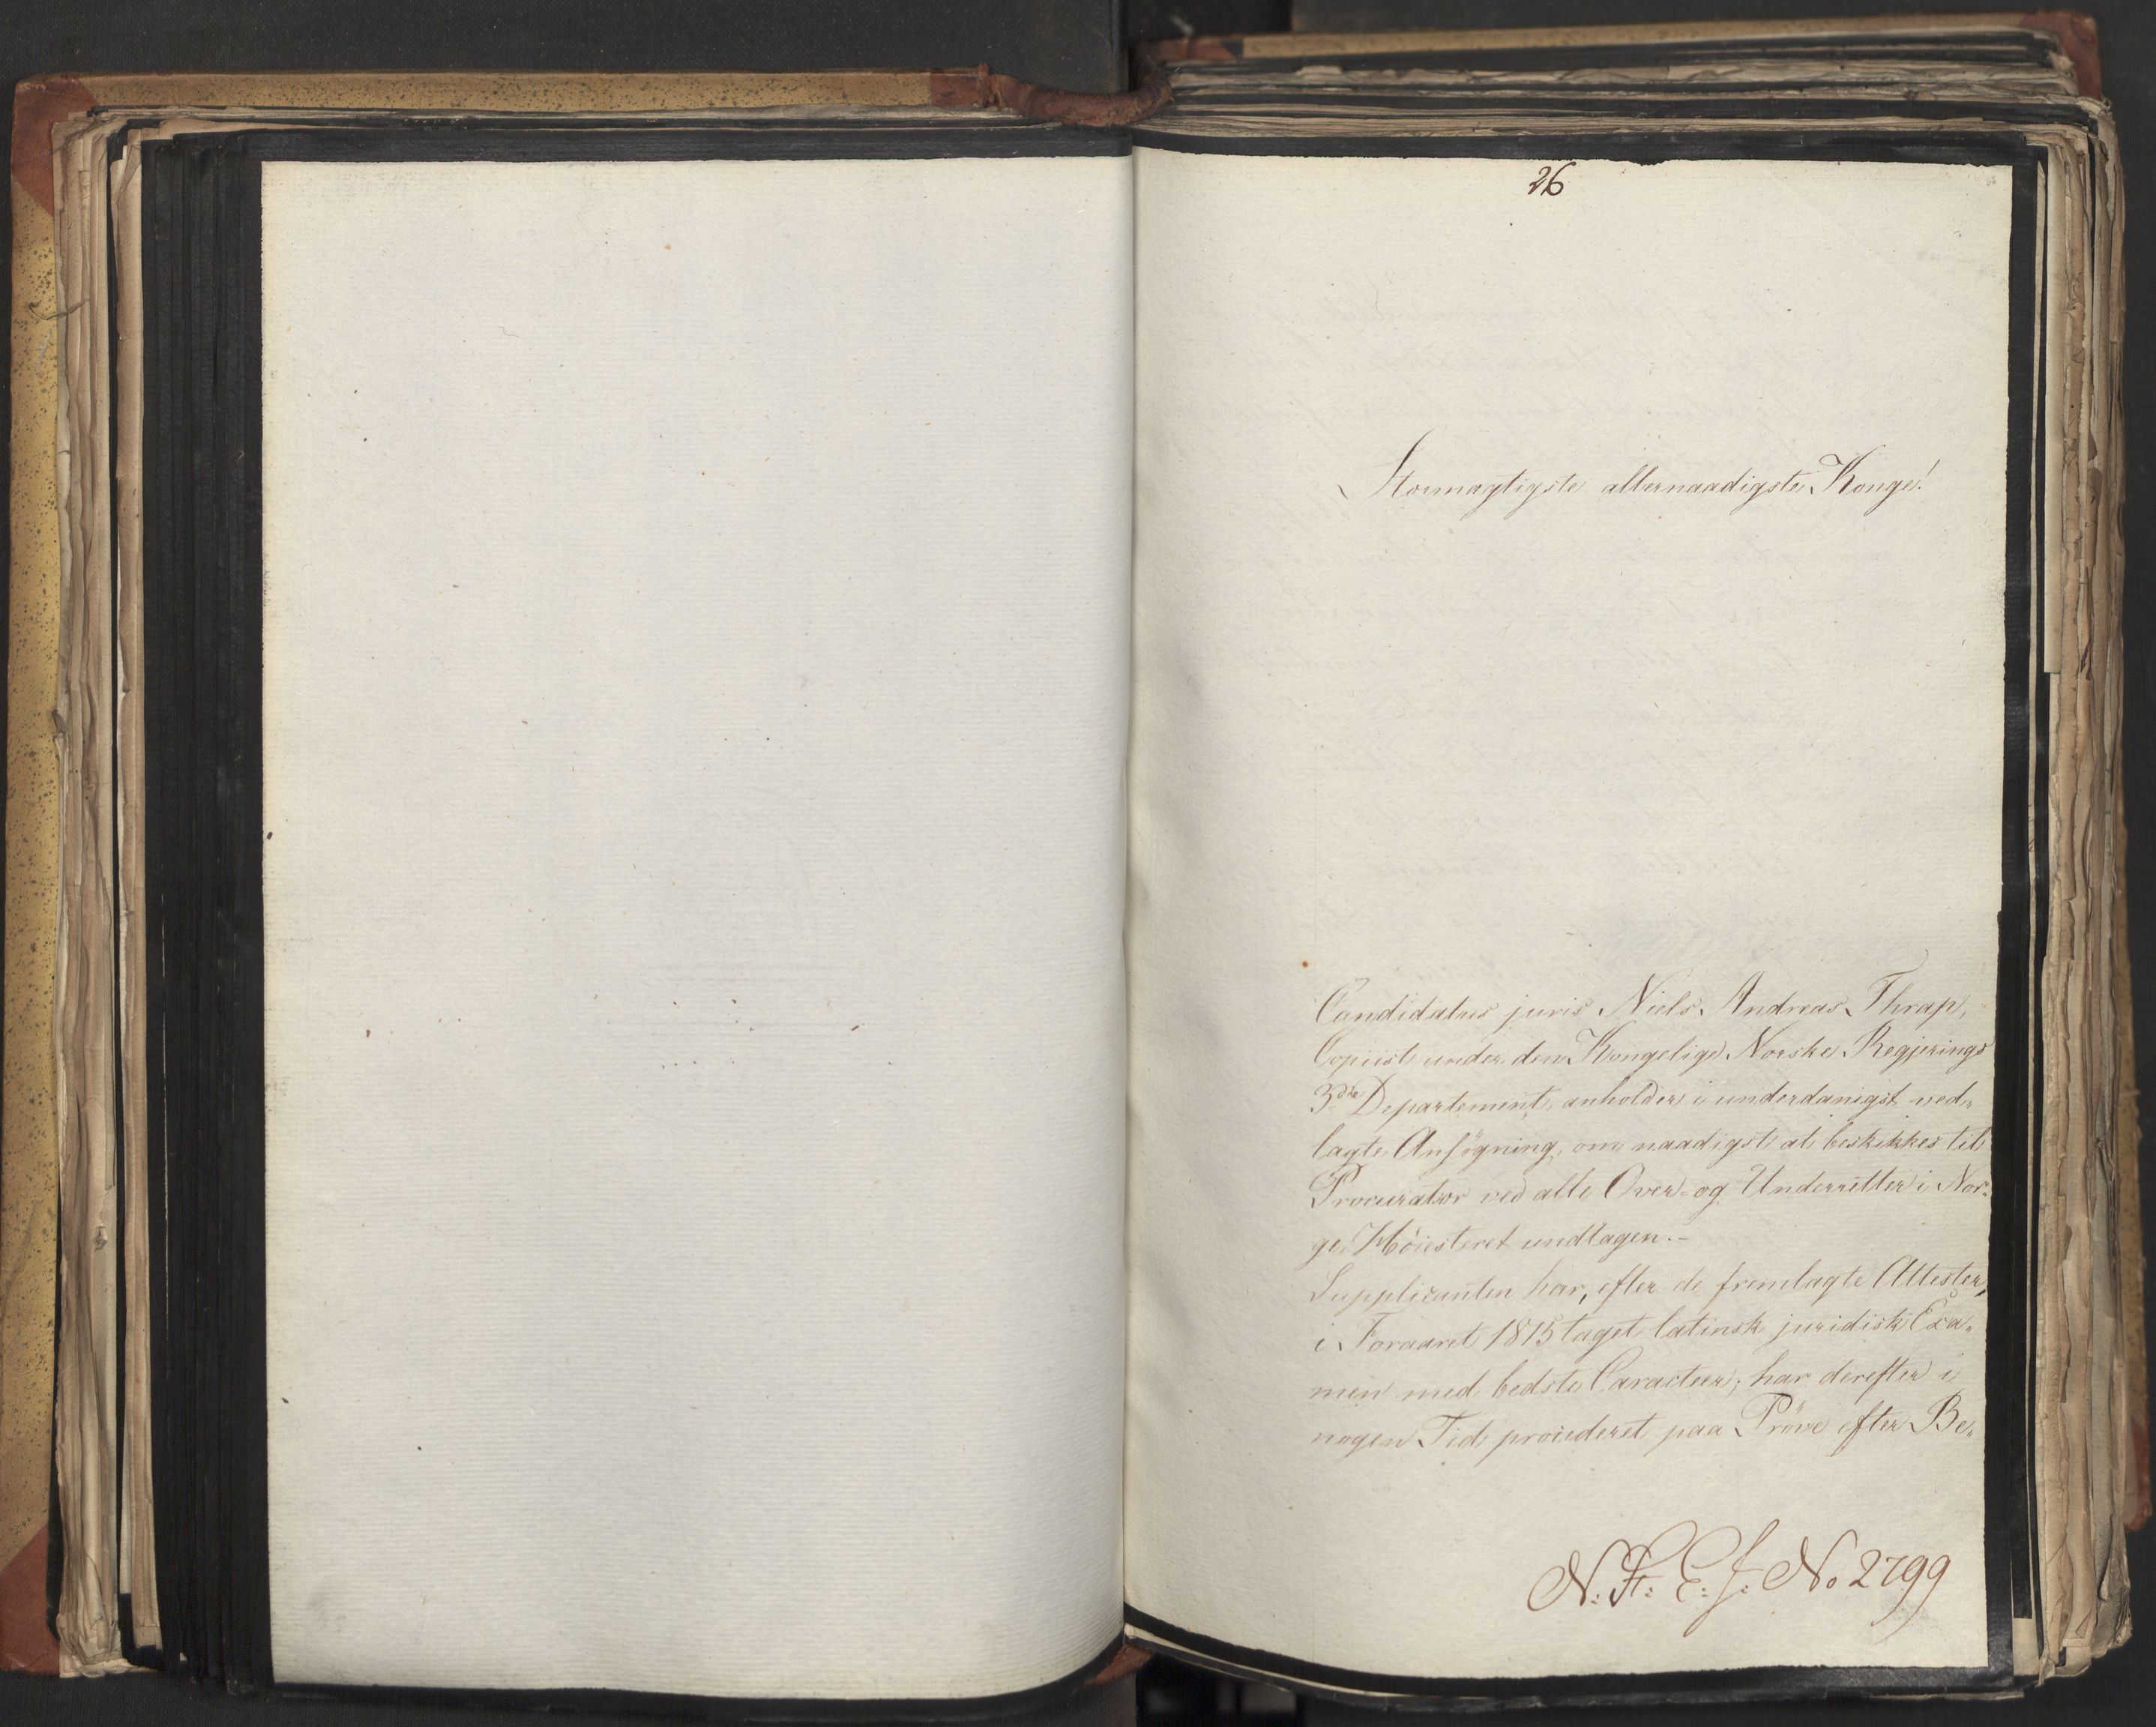 26
Stormægtigste allernaadigste Konge!
Candidatus juris Niels Andreas Thrap,
Copiist under den Kongelige Norske Regjerings
3die Departement, anholder i underdanigst ved-
lagte Ansøgning, om naadigst at beskikkes til
Procurator ved alle Over- og Underretter i Nor-
ge, Höiesteret undtagen.-
Supplicanten har, efter de fremlagte Attester,
i Foraaret 1815 taget latinsk juridisk Exa-
men med bedste Caracteer; har derefter i
nogen Tid procederet paa Pröve efter Be-
N: No 2799